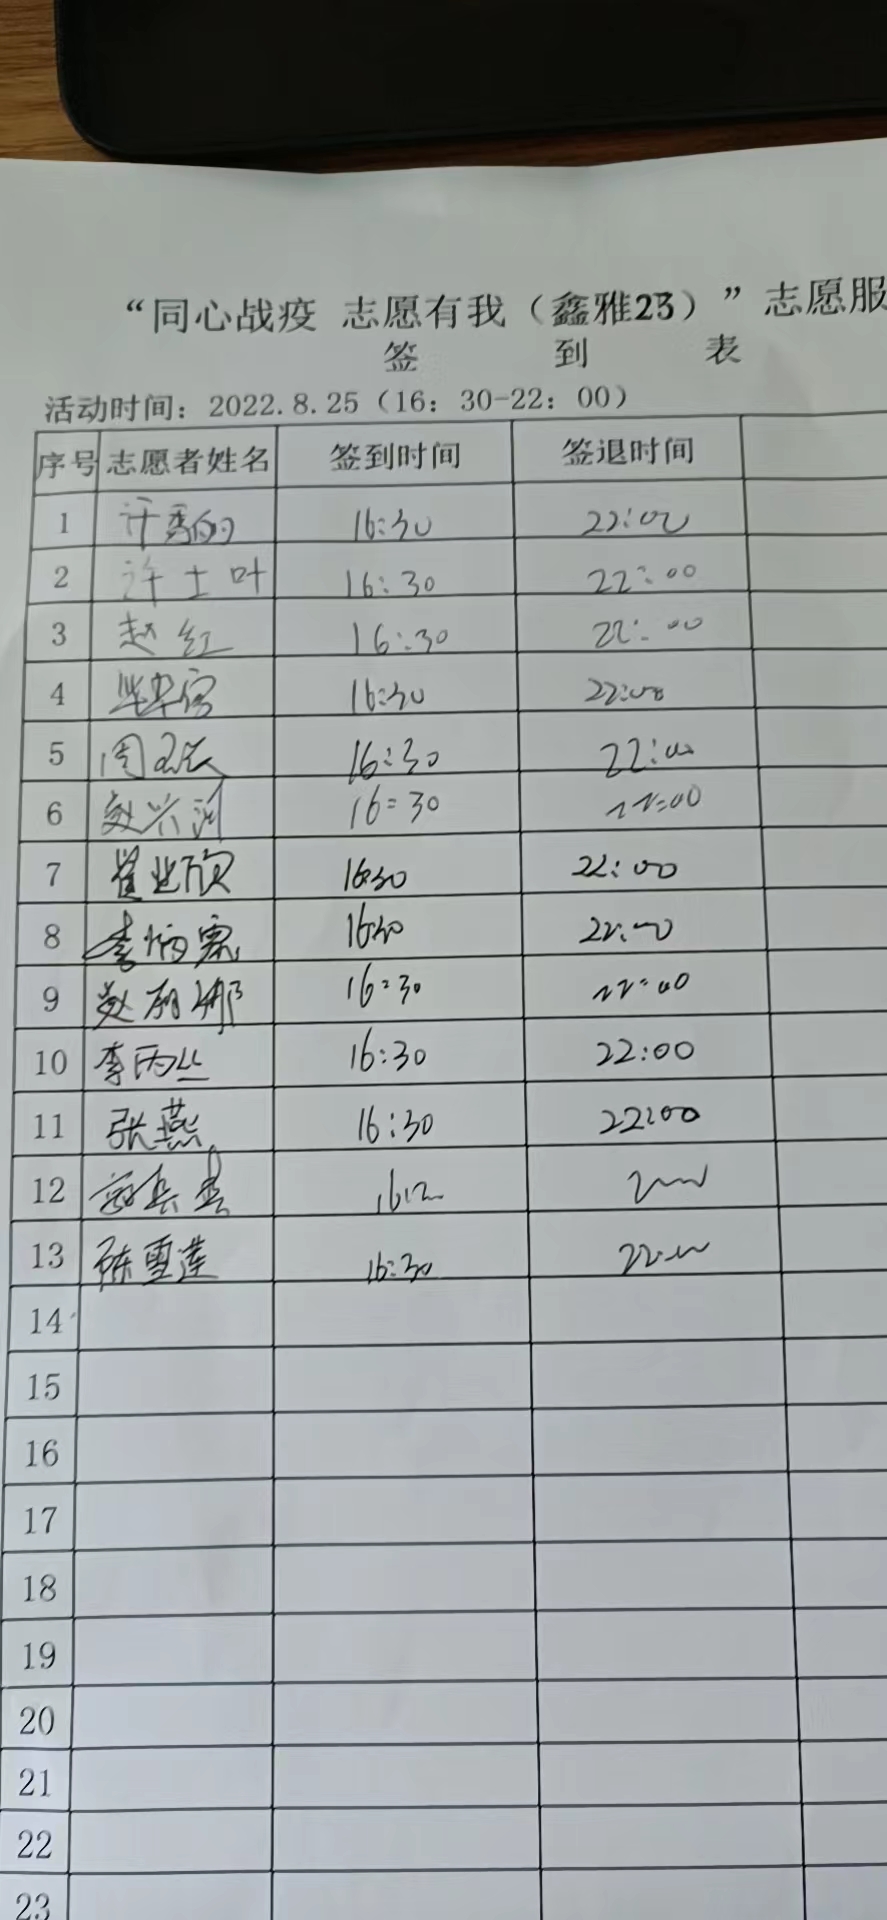 “同心战疫 志愿有我（鑫雅23）”志愿服
签 到 表
活动时间：2022.8.25（16：30-22：00）
序号 志愿者姓名 签到时间 签退时间
1 许 16:30 22:00
2 许士叶 16:30 22:00
3 赵红 16:30 22:00
4 16:30 22:00
5 周 16:30 22:00
6 赵兴河 16:30 22:00
7 崔业欣 1630 22:00
8 李炳霖 1630 22:00
9 赵丽娜 16:30 22:00
10 李丙丝 16:30 22:00
11 张燕 16:30 22:00
12
13 陈雪莲 16:30 22:00
14
15
16
17
18
19
20
21
22
23